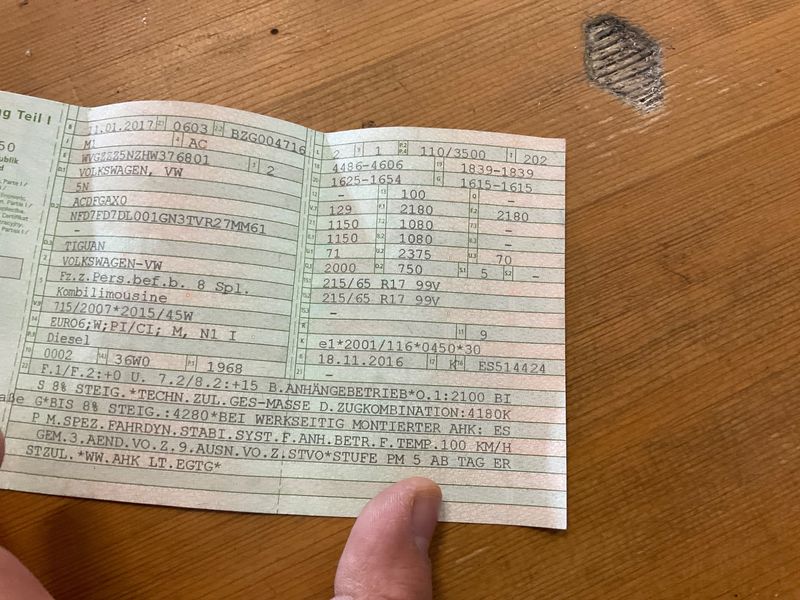 g Teil I
11.01.2017 0603 BZG004716
M1 AC
WVGZZZ5NZHW376801 2
VOLKSWAGEN, VW
5N
ACDFGAX0
NFD7FD7DL001GN3TVR27MM61
-
TIGUAN
VOLKSWAGEN-VW
Fz.z.Pers.bef.b. 8 Spl.
Kombilimousine
715/2007*2015/45W
EURO6;W;PI/CI; M, N1 I
Diesel
0002 36W0 1968
L 2 1 110/3500 T 202
4486-4606 1839-1839
1625-1654 G 1615-1615
- 100 -
129 2180 2180
1150 1080 -
1150 1080 -
71 2375 70
2000 750 5 -
215/65 R17 99V
215/65 R17 99V
-
9
K e1*2001/116*0450*30
6 18.11.2016 17 K 16 ES514424
21 -
F.1/F.2:+0 U. 7.2/8.2:+15 B.ANHÄNGEBETRIEB*O.1:2100 BI
S 8% STEIG.*TECHN.ZUL.GES-MASSE D.ZUGKOMBINATION:4180K
G*BIS 8% STEIG.:4280*BEI WERKSEITIG MONTIERTER AHK: ES
P M.SPEZ.FAHRDYN.STABI.SYST.F.ANH.BETR.F.TEMP.100 KM/H
GEM.3.AEND.VO.Z.9.AUSN.VO.Z.STVO*STUFE PM 5 AB TAG ER
STZUL.*WW.AHK LT.EGTG*